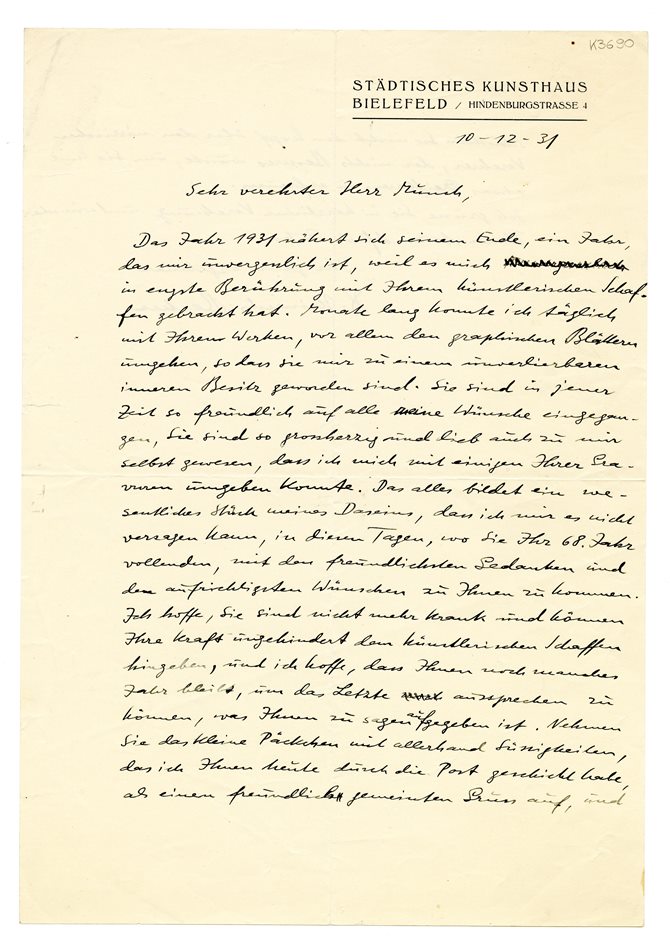 K3690
STÄDTISCHES KUNSTHAUS
BIELEFELD / HINDENBURGSTRASSE 4
10-12-31
Sehr verehrter Herr Munch,
Das Jahr 1931 nähert sich seinem Ende, ein Jahr,
das mir unvergesslich ist, weil es mich
in engste Berührung mit Ihrem künstlerischen Schaf-
fen gebracht hat. Monate lang konnte ich täglich
mit Ihren Werken, vor allem den graphischen Blättern
umgehen, sodass sie mir zu einem unverlierbaren
inneren Besitz geworden sind. Sie sind in jener
Zeit so freundlich auf alle meine Wünsche eingegan-
gen, Sie sind so grossherzig und lieb auch zu mir
selbst gewesen, dass ich mich mit einigen Ihrer Gra-
vuren umgeben konnte. Das alles bildet ein we-
sentliches Stück meines Daseins, dass ich mir es nicht
versagen kann, in diesen Tagen, wo Sie Ihr 68. Jahr
vollenden, mit den freundlichsten Gedanken und
den aufrichtigsten Wünschen zu Ihnen zu kommen.
Ich hoffe, Sie sind nicht mehr krank und können
Ihre Kraft ungehindert dem künstlerischen Schaffen
hingeben, und ich hoffe, dass Ihnen noch manches
Jahr bleibt, um das Letzte aussprechen zu
können, was Ihnen zu sagen aufgegeben ist. Nehmen
Sie das kleine Päckchen mit allerhand Süssigkeiten,
das ich Ihnen heute durch die Post geschickt habe,
als einen freundlich gemeinten Gruss auf, und